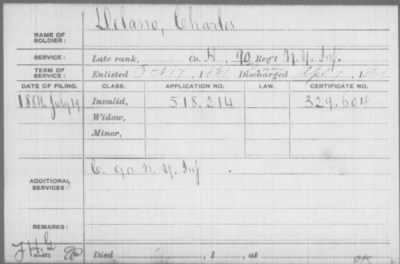 NAME OF SOLDIER: Delano, Charles
SERVICE: Late rank, Co. H, 90 Reg't N.Y. Inf.
TERM OF SERVICE: Enlisted Oct 17, 1861 Discharged
DATE OF FILING. CLASS. APPLICATION NO. LAW. CERTIFICATE NO.
1884, July 19 Invalid, 518.214 329.604
Widow,
Minor,
ADDITIONAL SERVICES: C. 90 N.Y. Inf
REMARKS:
Died , 1 , at